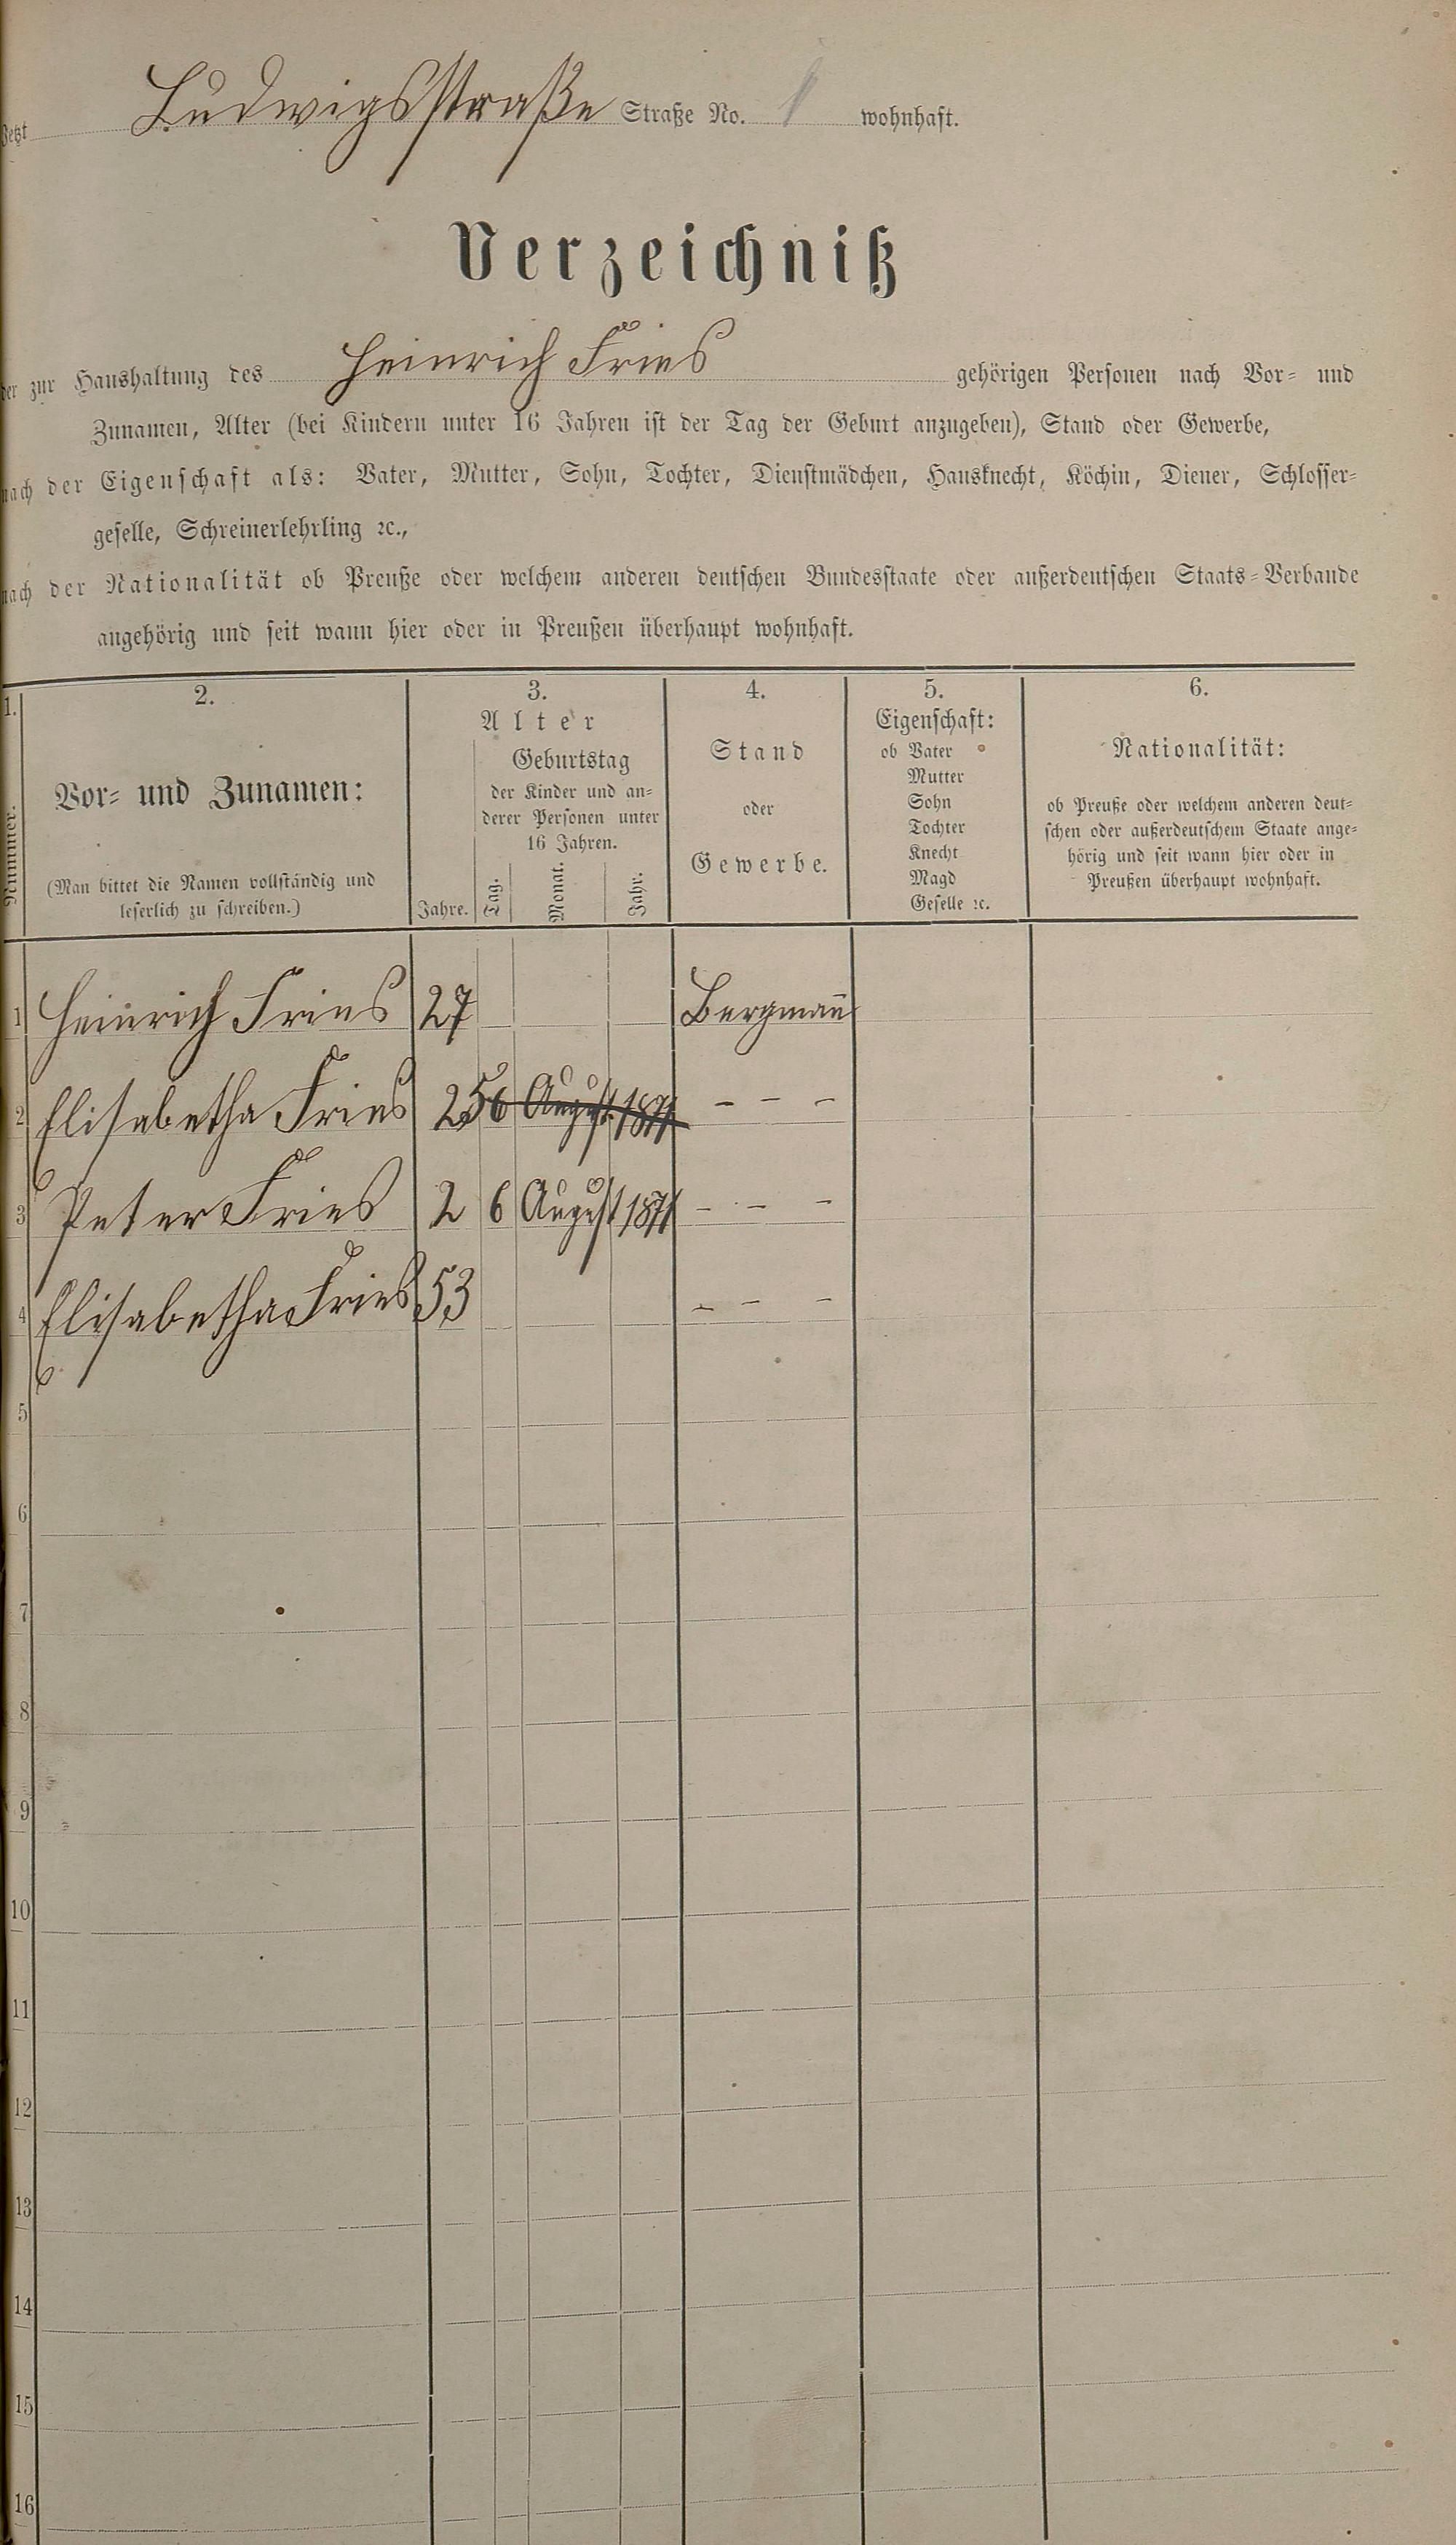 Jetzt Ludwigsstraße Straße No. 1 wohnhaft.
Verzeichniß
der zur Haushaltung des Heinrich Fries gehörigen Personen nach Vor- und
Zunamen, Alter (bei Kindern unter 16 Jahren ist der Tag der Geburt anzugeben), Stand oder Gewerbe,
nach der Eigenschaft als: Vater, Mutter, Sohn, Tochter, Dienstmädchen, Hausknecht, Köchin, Diener, Schlosser-
geselle, Schreinerlehrling ꝛc.,
nach der Nationalität ob Preuße oder welchem anderen deutschen Bundesstaate oder außerdeutschen Staats-Verbande
angehörig und seit wann hier oder in Preußen überhaupt wohnhaft.
1.
Nummer.
2.
Vor- und Zunamen:
(Man bittet die Namen vollständig und
leserlich zu schreiben.)
3.
Alter
Geburtstag
der Kinder und an-
derer Personen unter
16 Jahren.
Jahre. Tag. Monat. Jahr.
4.
Stand
oder
Gewerbe.
5.
Eigenschaft:
ob Vater
Mutter
Sohn
Tochter
Knecht
Magd
Geselle ꝛc.
6.
Nationalität:
ob Preuße oder welchem anderen deut-
schen oder außerdeutschem Staate ange-
hörig und seit wann hier oder in
Preußen überhaupt wohnhaft.
1 Heinrich Fries 27 Bergman̄
2 Elisabetha Fries 25 6 August 1871 - - -
3 Peter Fries 2 6 August 1871 - - -
4 Elisabetha Fries 53 - - -
5
6
7
8
9
10
11
12
13
14
15
16